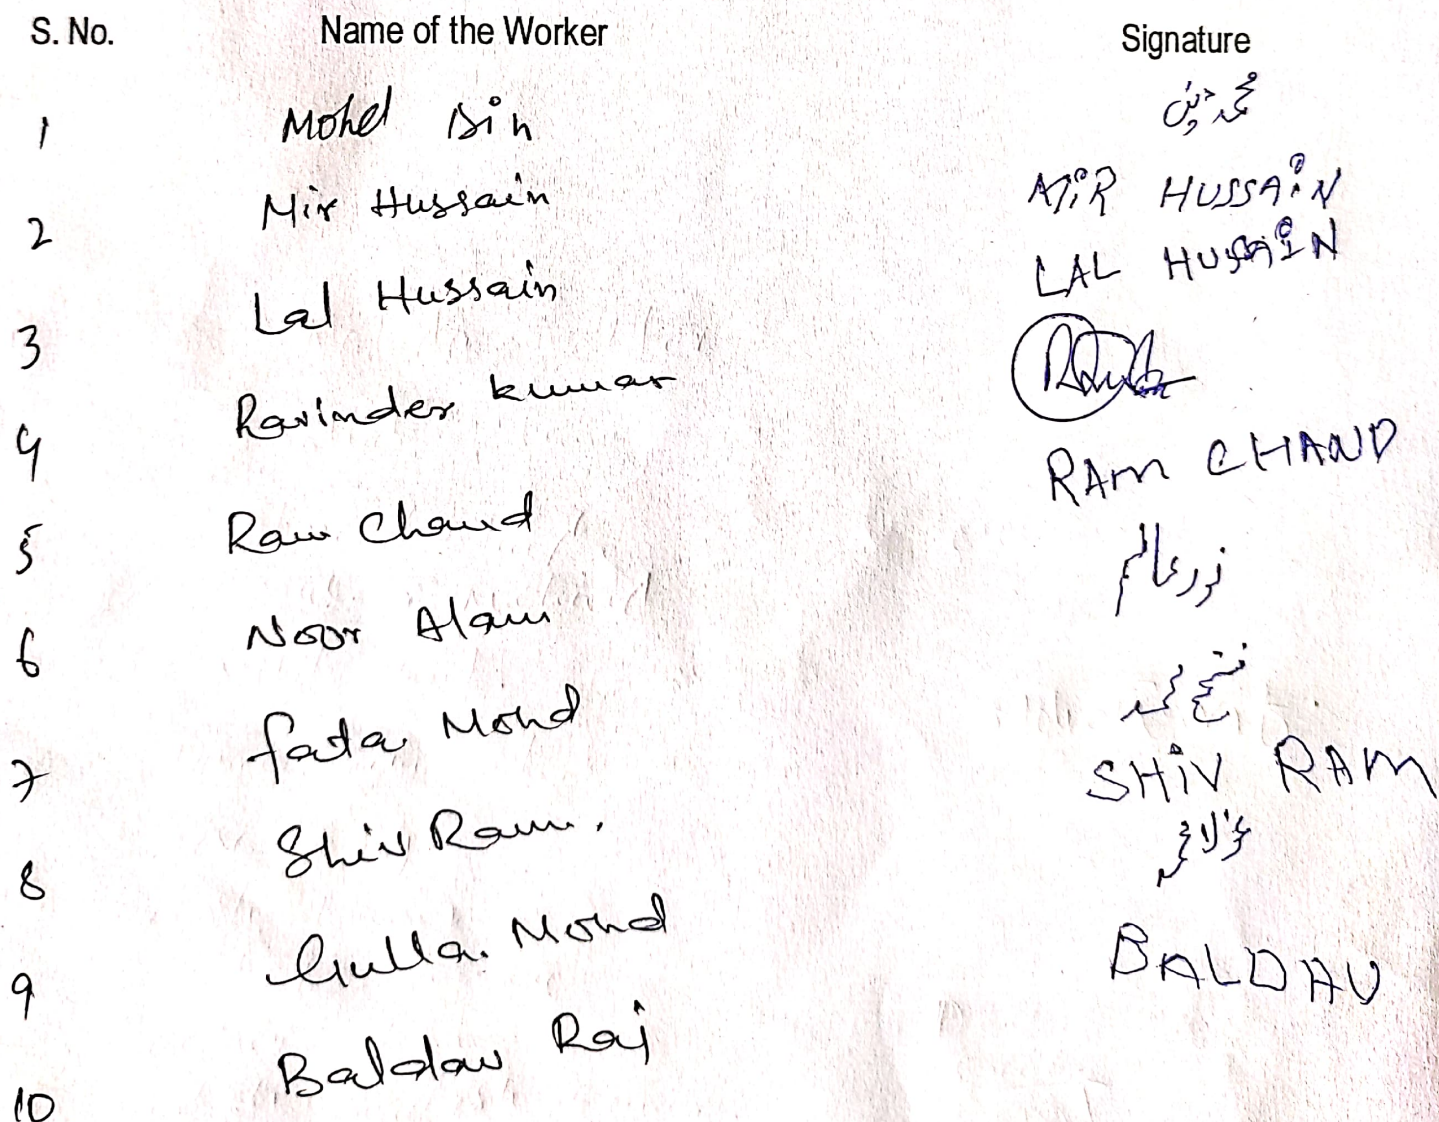 S. No. Name of the Worker Signature
1 Mohd Din محمد دین
2 Mir Hussain MiR HUSSAiN
3 Lal Hussain LAL HUSSAIN
4 Ravinder kumar
5 Ram Chand RAM CHAND
6 Noor Alam نور عالم
7 fata Mohd فتح محمد
8 Shiv Ram. SHiV RAM
9 Gulla. Mohd محمد
10 Baldav Raj BALDAV